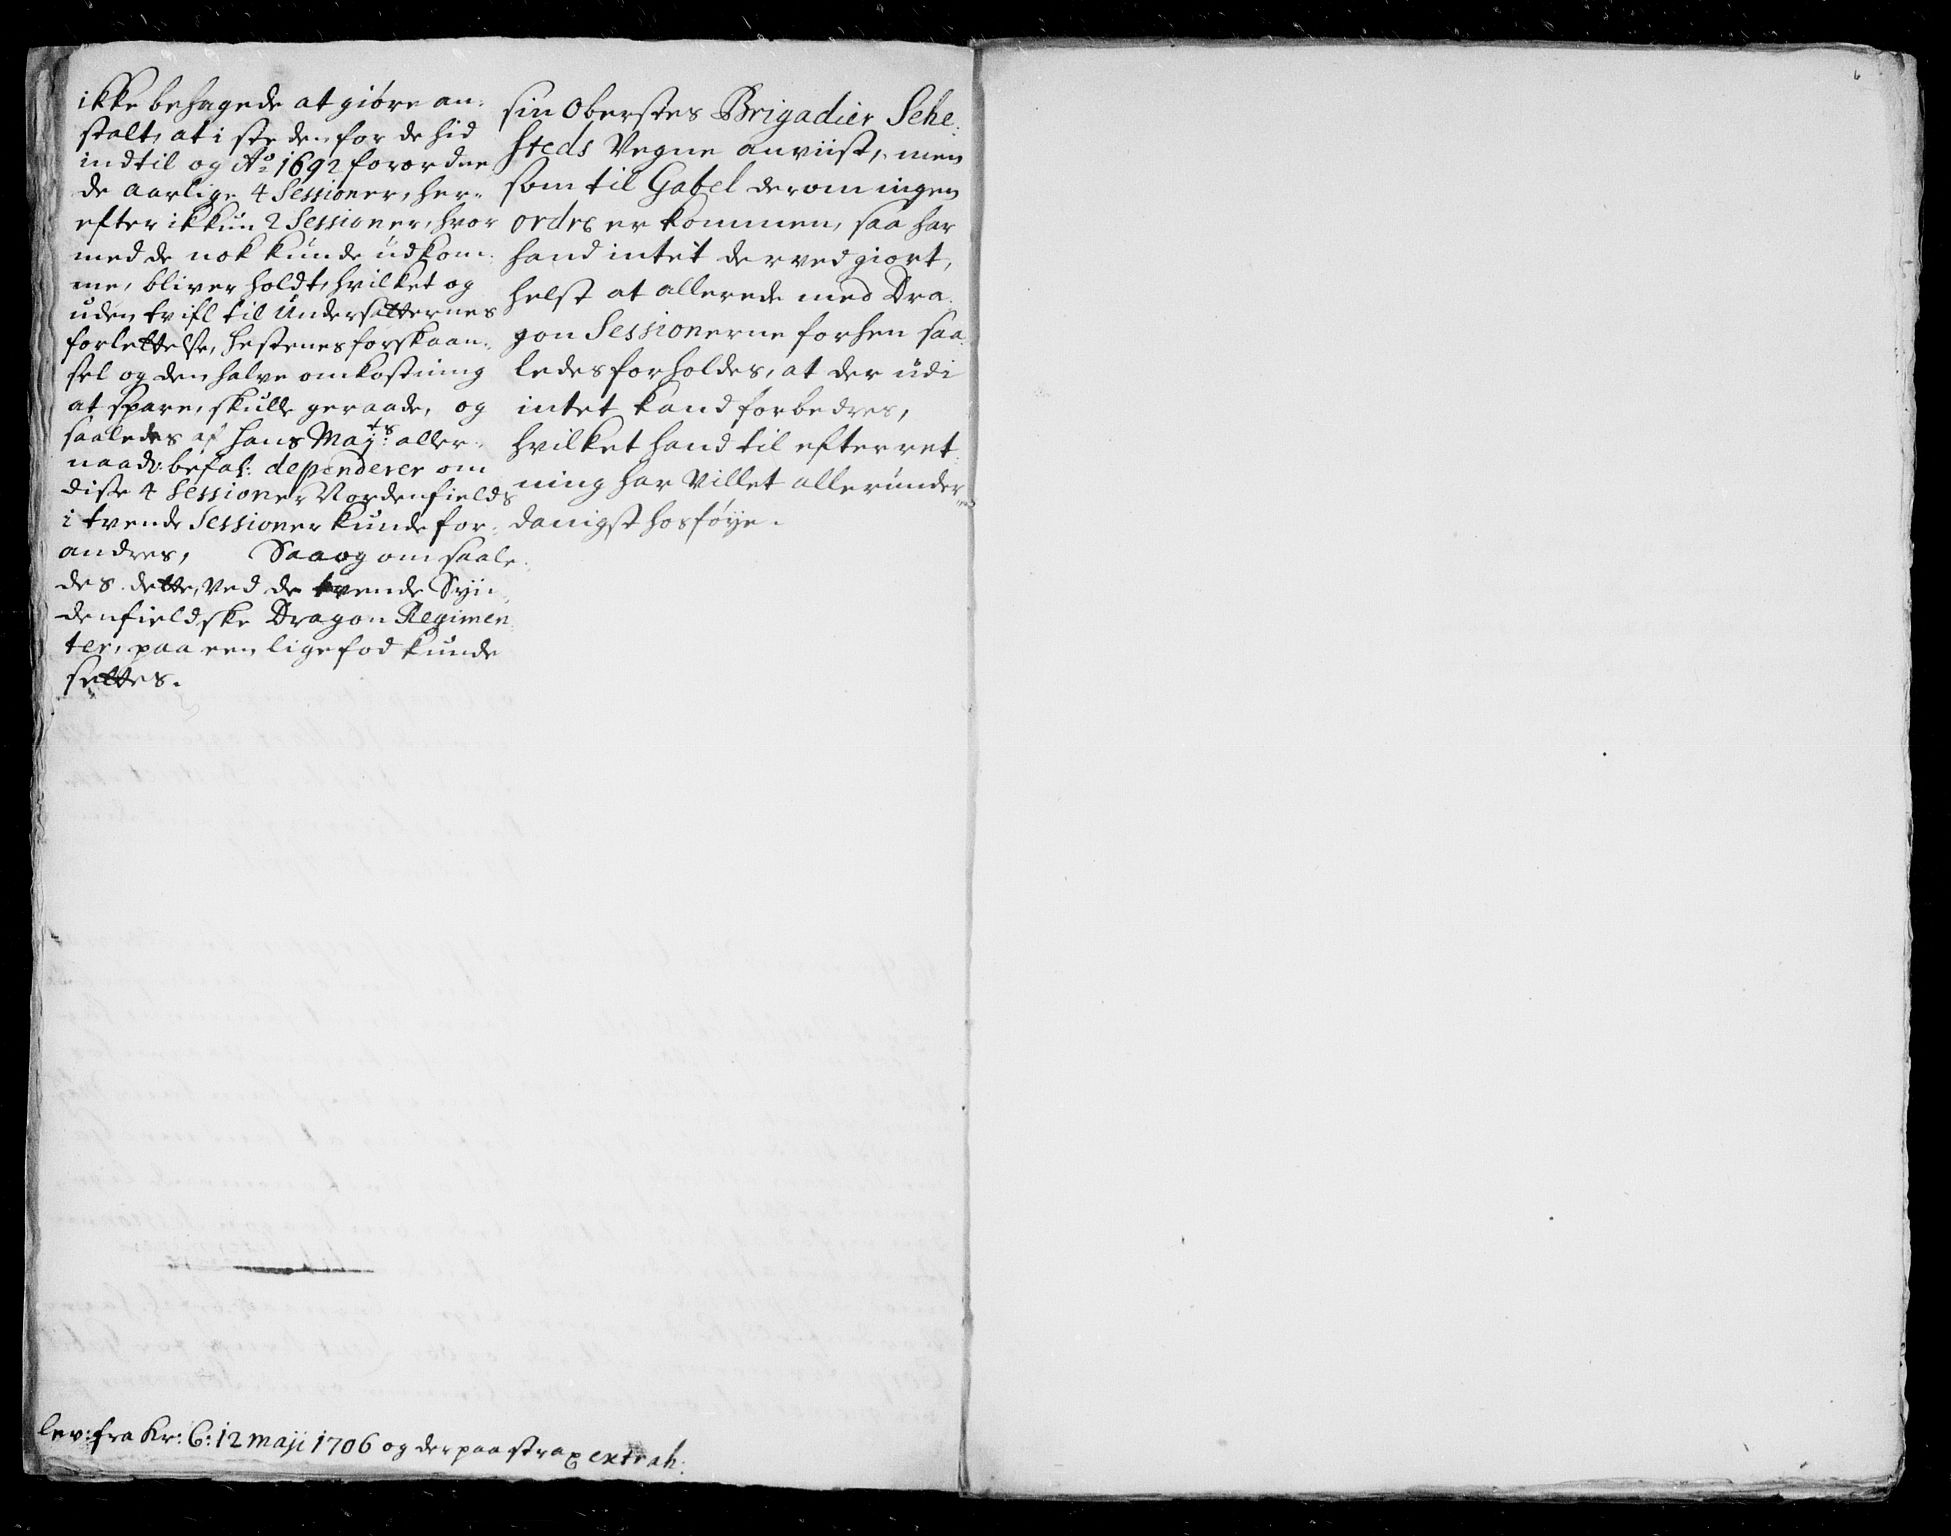 ikke behagede at giøre an-
stalt, at i steden for de hid
indtil og Ao 1692 forordne
de aarlige 4 Sessioner, her-
efter ikkun 2 Sessioner, hvor
med de nok kunde udkom-
me, bliver holdt, hvilket og
uden tvifl til Undersatternes
forlettelse, hestenes forskaan-
sel og den halve omkostning
at spare, skulle geraade, og
saaledes af hans Mayts aller-
naads: befal: dependerer om
disse 4 Sessioner Nordenfields
i tvende Sessioner kunde for-
andres, Saa og om saale-
des dette, ved de tvende Syn-
denfieldske Dragon Regimen
ter, paa een lige fod kunde
settes.
sin Oberstes Brigadier Sehe-
steds Vegne anviist, men
som til Gabel derom ingen
ordre er kommen, saa har
hand intet derved giort,
helst at allerede med Dra-
gon Sessionerne forhen saa
ledes forholdes, at der udi
intet kand forbedres,
hvilket hand til efterret-
ning har Villet allerunder-
danigst hosføye.
lev: fra Kr: C: 12 maji 1706 og der paa strax extrah: